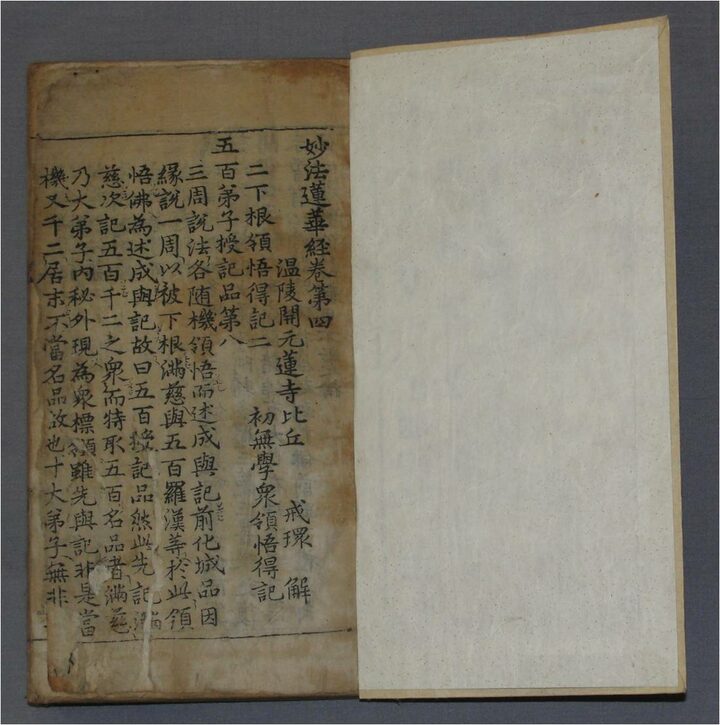 妙法蓮華經卷第四
溫陵開元蓮寺比丘 戒環 解
二下根領悟得記二 初無學衆領悟得記
五百弟子授記品第八
三周說法各随機領悟而述成與記前化城品因
緣說一周以被下根滿慈與五百羅漢等於此領
悟佛為述成與記故曰五百授記品然此先記滿
慈次記五百千二之衆而特取五百名品者滿慈
乃大弟子內秘外現為衆標領雖先與記非是當
機又千二居末不當名品故也十大弟子無非